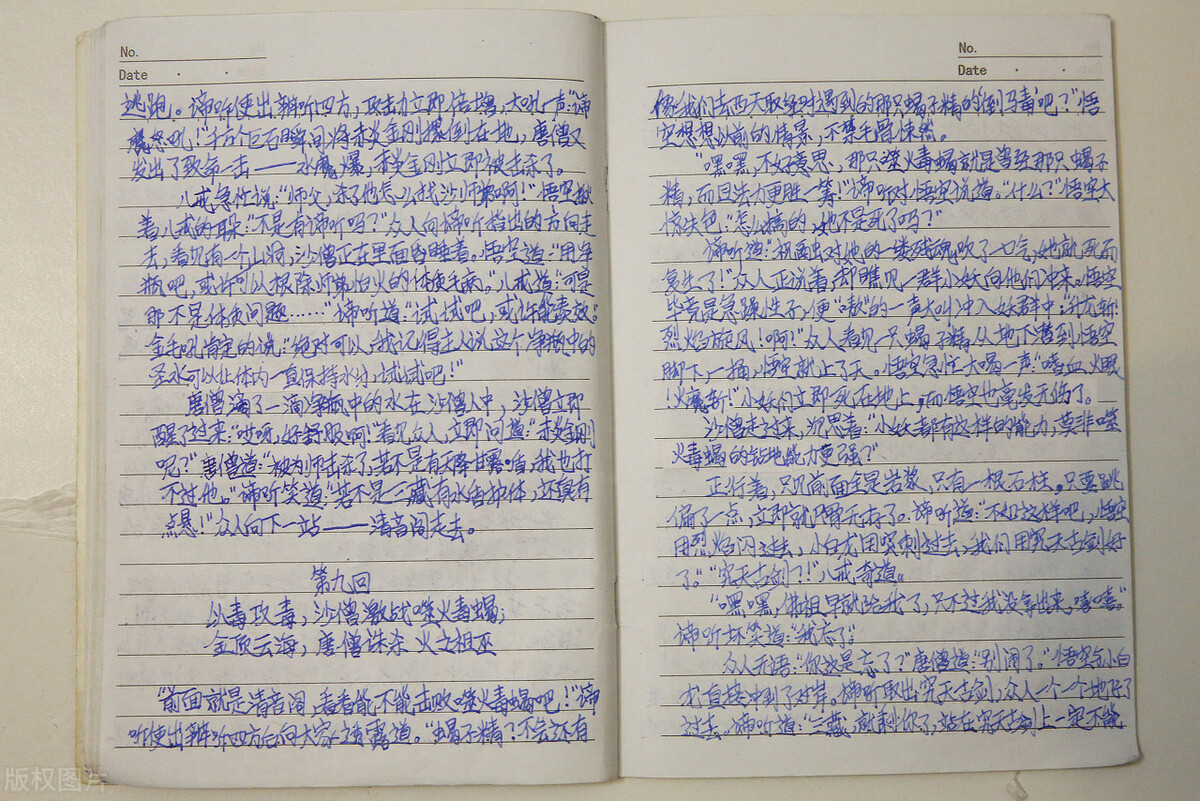 No.
Date
逃跑)。谛听使出辨听四方,攻击力立即倍增,大吼一声:"谛
魔怒吼!"千万个巨石瞬间将赤炎金刚摞倒在地,唐僧又
发出了致命一击——水魔爆,赤炎金刚立即被击杀了。
八戒急忙说:"师父,杀了他怎么找沙师弟啊!"悟空揪
着八戒的耳朵:"不是有谛听吗?"众人向谛听指出的方向走
去,看见有一个山洞,沙僧正在里面昏睡着。悟空道:"用净
瓶吧,或许可以根除师弟怕火的体质毛病。"八戒道:"可是
那不是体质问题……"谛听道:"试试吧,或许能奏效。"
金毛吼肯定的说:"绝对可以,我记得主人说这个净瓶中的
圣水可以让体内一直保持水分,试试吧!"
唐僧滴了一滴净瓶中的水在沙僧人中,沙僧立即
醒了过来:"哎呀,好舒服啊!"看见众人,立即问道:"赤炎金刚
呢?"唐僧道:"被为师击杀了,若不是有天降甘露盾,我也打
不过他。"谛听笑道:"若不是三藏有水盾护体,还真有
点悬!"众人向下一站——清音阁走去。
第九回
以毒攻毒,沙僧激战噬火毒蝎;
金顶云海,唐僧诛杀火之祖巫
"前面就是清音阁,看看能不能击败噬火毒蝎吧!"谛
听使出辨听四方后向大家透露道。"蝎子精?不会还有
No.
Date
像我们去西天取经时遇到的那只蝎子精的'倒马毒'吧?"悟
空想想以前的情景,不禁毛骨悚然。
"嘿嘿,不好意思,那只噬火毒蝎就是曾经那只蝎子
精,而且法力更胜一筹!"谛听对悟空说道。"什么?"悟空大
惊失色:"怎么搞的,她不是死了吗?"
谛听道:"祝融对他的一缕残魂吹了一口气,她就死而
复生了!"众人正说着,却瞧见一群小妖向他们冲来。悟空
毕竟是急躁性子,便"嗷"的一声大叫冲入妖群中:"升龙斩!
烈焰旋风!啊!"众人看见一只蝎子精从地下遁到悟空
脚下,一捅,悟空就上了天。悟空急忙大喝一声:"嗜血火眼
!火魔斩!"小妖们立即死在地上,而悟空也毫发无伤了。
沙僧走了过来,沉思着:"小妖都有这样的能力,莫非噬
火毒蝎的钻地能力更强?"
正行着,只见前面全是岩浆,只有一根石柱。只要跳
偏了一点,立即就尸骨无存了。谛听道:"不如这样吧,悟空
用烈焰闪过去,小白龙用突刺过去,我们用究天古剑好
了。""究天古剑?!"八戒奇道。
"嘿嘿,佛祖早就给我了,只不过我没拿出来,嘻嘻。"
谛听坏笑道:"我忘了。"
众人无语:"你这是忘了?"唐僧道:"别闹了。"悟空与小白
龙直接冲到了对岸。谛听取出究天古剑,众人一个一个地飞了
过去。谛听道:"三藏,就剩你了,站在究天古剑上一定不能
版权图片